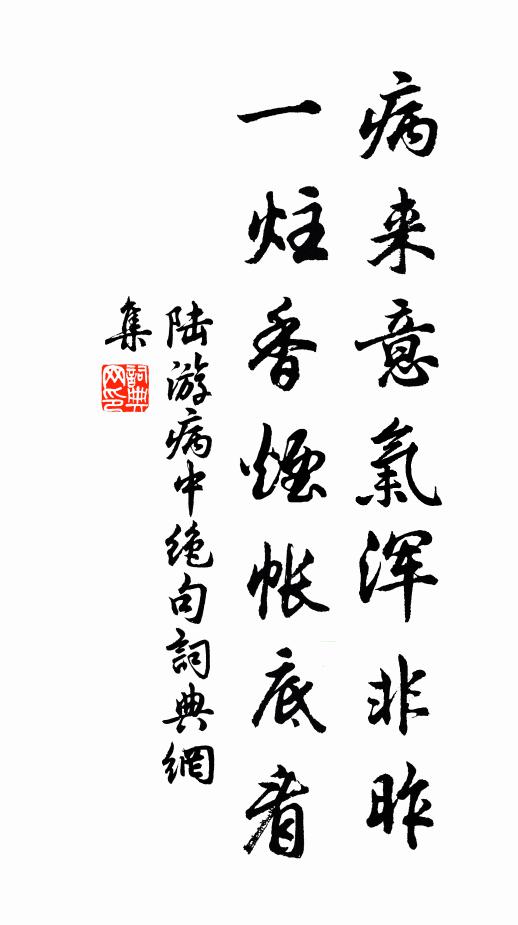 病来意氣浑非昨
一炷香煙帐底看
陆游病中绝句詞典網
集
詞典网印